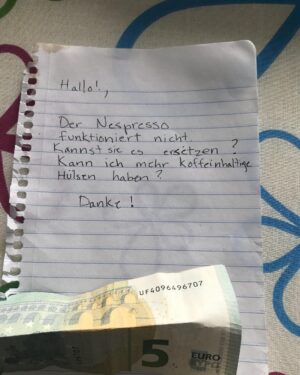 Hallo!,
Der Nespresso
funktioniert nicht.
Kannst sie es ersetzen?
Kann ich mehr Koffeinhaltige
Hülsen haben?
Danke!
UF4096496707
5
EURO